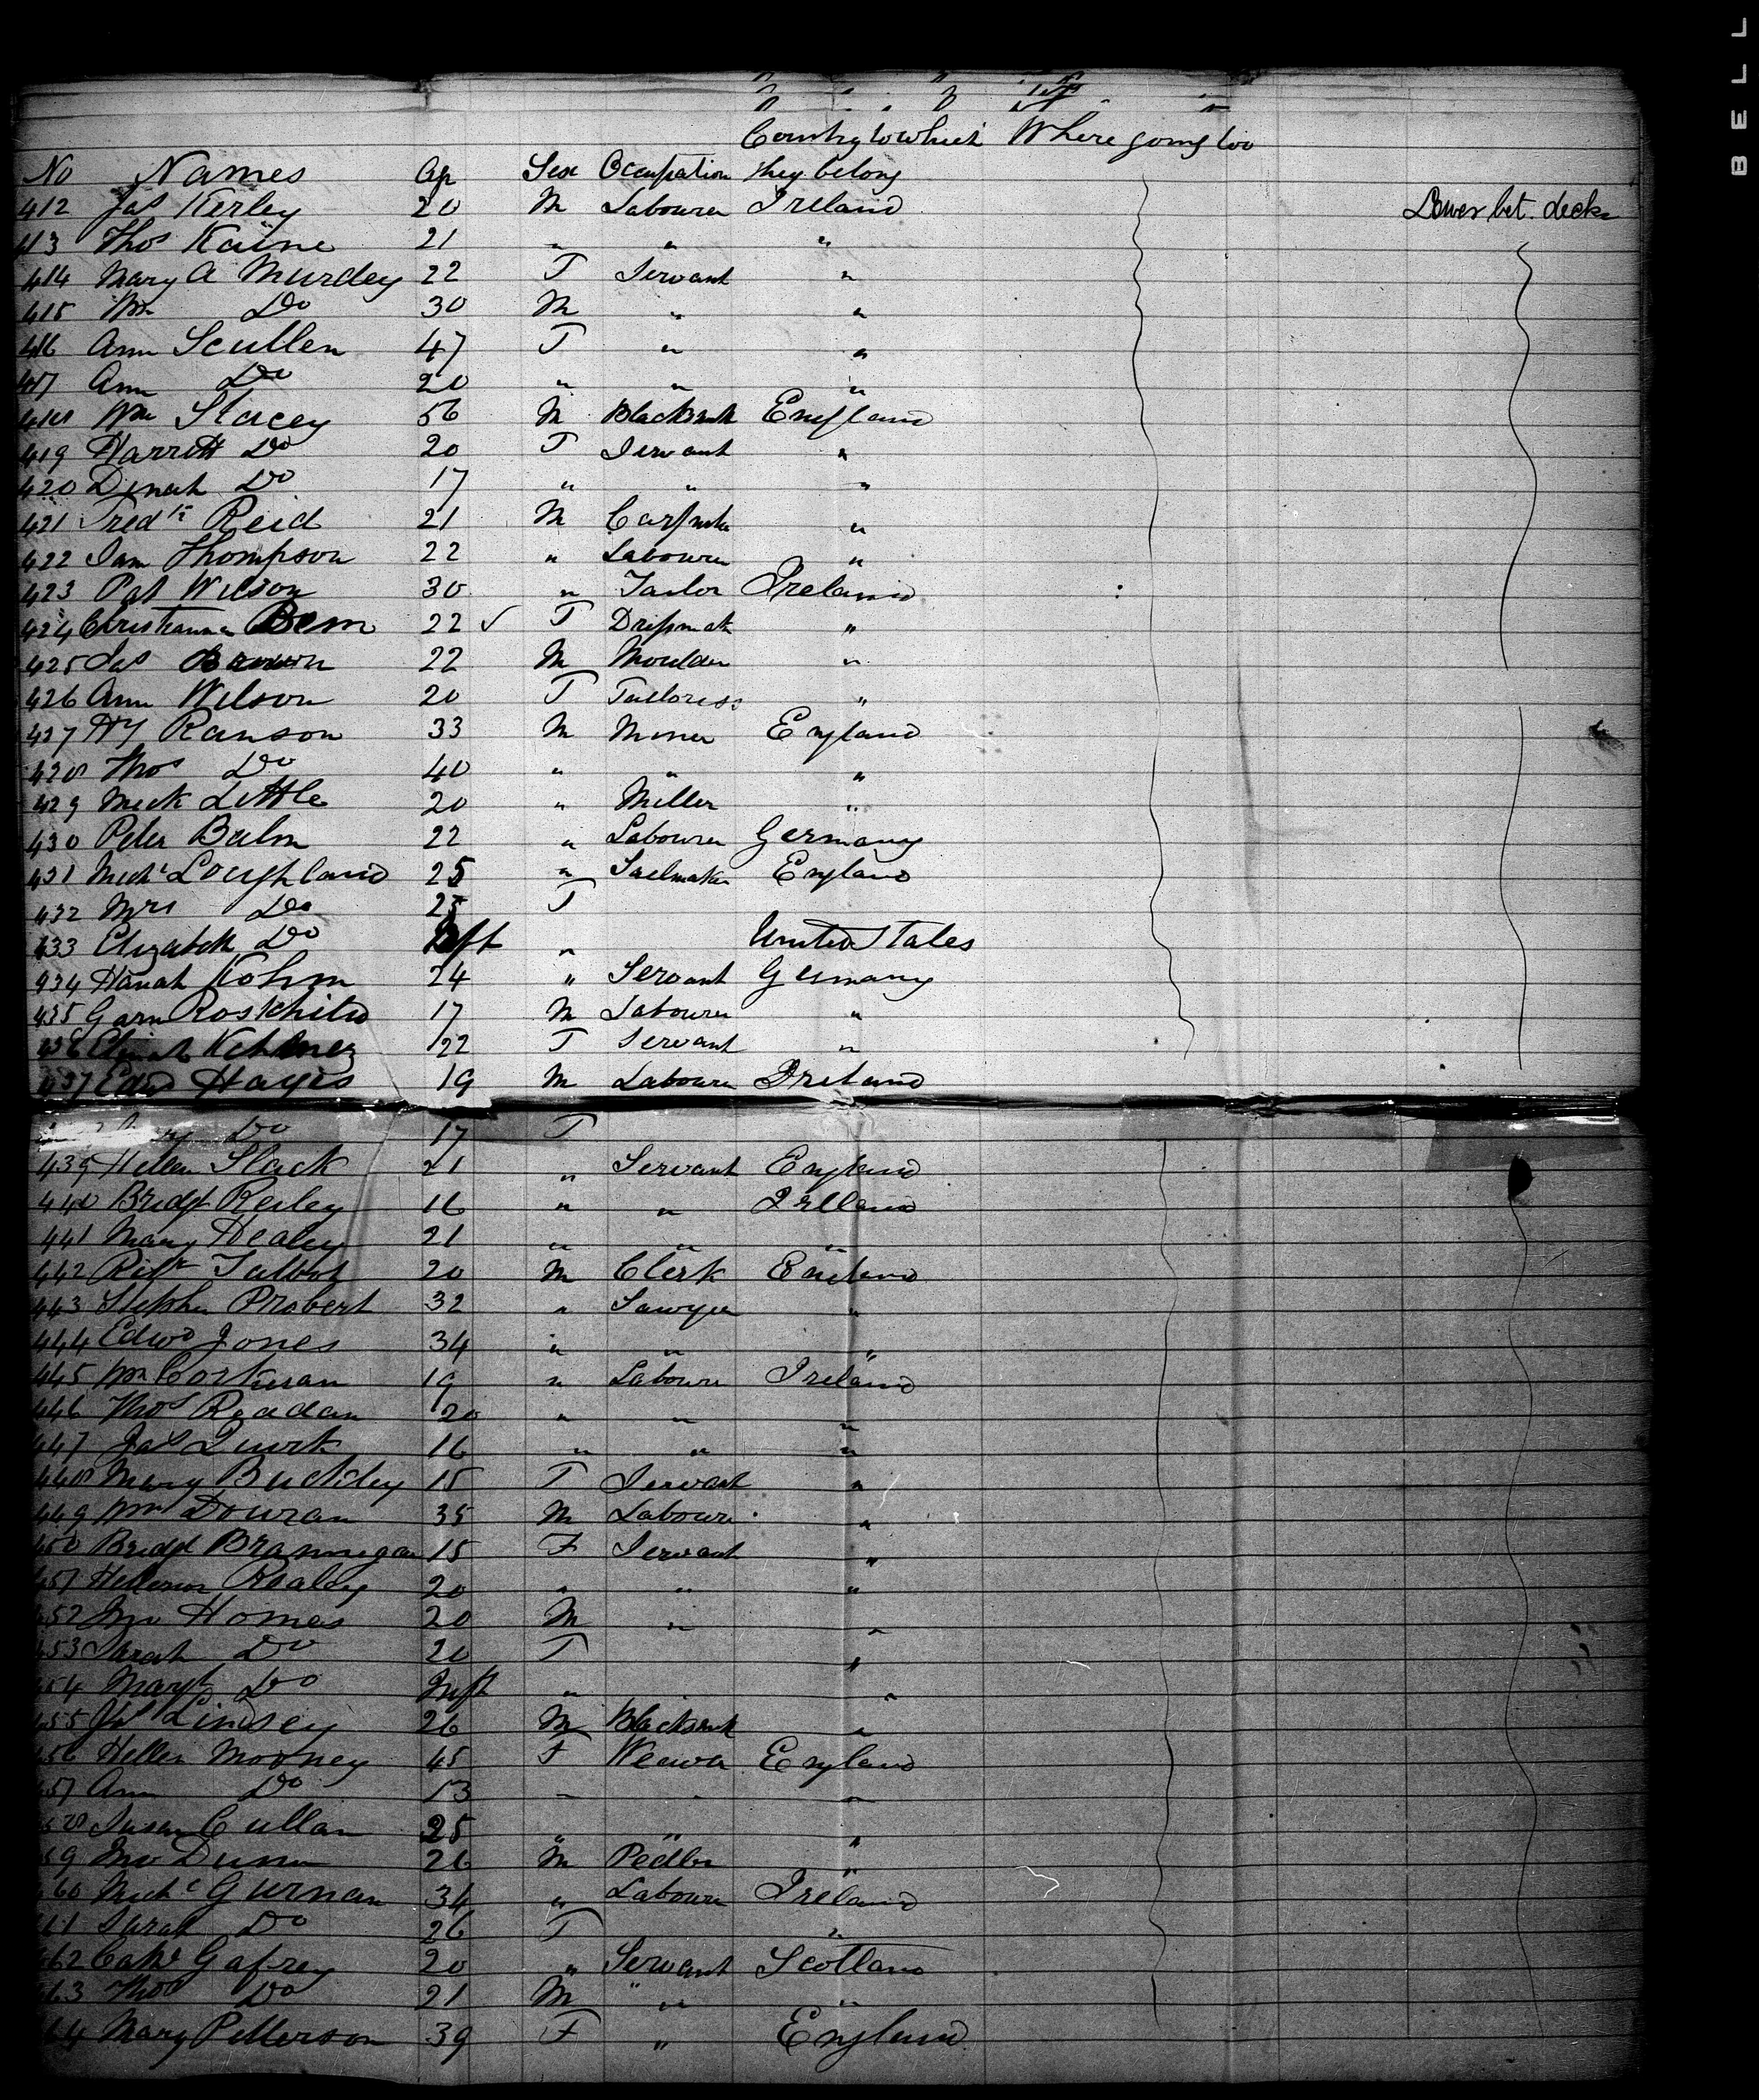 BELL
Country to which Where going too
No Names Age Sex Occupation they belong
412 Jas Kerley 20 M Labourer Ireland Lower bet. decks
413 Thos Kaine 21 " " "
414 Mary A Murdey 22 F Servant "
415 Wm Do 30 M " "
416 Ann Scullen 47 F " "
417 Ann Do 20 " " "
418 Wm Stacey 56 M Blacksmth England
419 Harriett Do 20 F Servant "
420 Dinah Do 17 " " "
421 Fredk Reid 21 M Carpnter "
422 Sam Thompson 22 " Labourer "
423 Pat Wilson 30 " Tailor Ireland
424 Christianna 22 ✓ F Dressmak "
425 Jas Brown 22 M Moulder "
426 Ann Wilson 20 F Tailoress "
427 Hy Ranson 33 M Miner England
428 Thos Do 40 " " "
429 Mick Little 20 " Miller "
430 Peter Balm 22 " Labourer Germany
431 Michl Loughland 25 " Sailmaker England
432 Mrs Do 25 F
433 Elizabeth Do Inft " United States
434 Hanah Kohm 24 " Servant Germany
435 Roskhild 17 M Labourer "
436 22 F Servant "
437 Edwd Hayes 19 M Labourer Ireland
Do 17 F
439 Hellen Slack 21 " Servant England
440 Bridgt Reiley 16 " " Irelland
441 Mary Healey 21 " " "
442 Talbot 20 M Clerk England
443 Stephen Probert 32 " Sawyer "
444 Edwd Jones 34 " " "
445 Wm Corkuran 19 " Labourer Ireland
446 Thos Readan 20 " " "
447 Jas Quirk 16 " " "
448 Mary Buckley 15 F Servant "
449 Wm Douran 35 M Labourer "
450 Bridgt Brannegan 15 F Servant "
451 Kealey 20 " " "
452 Jno Homes 20 M " "
453 Sarah Do 20 F "
454 Margt Do Inft " "
455 Js Lindsey 26 M Blacksmth "
456 Hellen Mooney 45 F Weaver England
457 Ann Do 13 " " "
458 Susan Cullan 25 " " "
459 Jno Dunn 26 M Pedler "
460 Michl Gurnan 34 " Labourer Ireland
461 Sarah Do 26 F "
462 Cathe Gafrey 20 " Servant Scotland
463 Thos Do 21 M " "
464 Mary Petterson 39 F " England